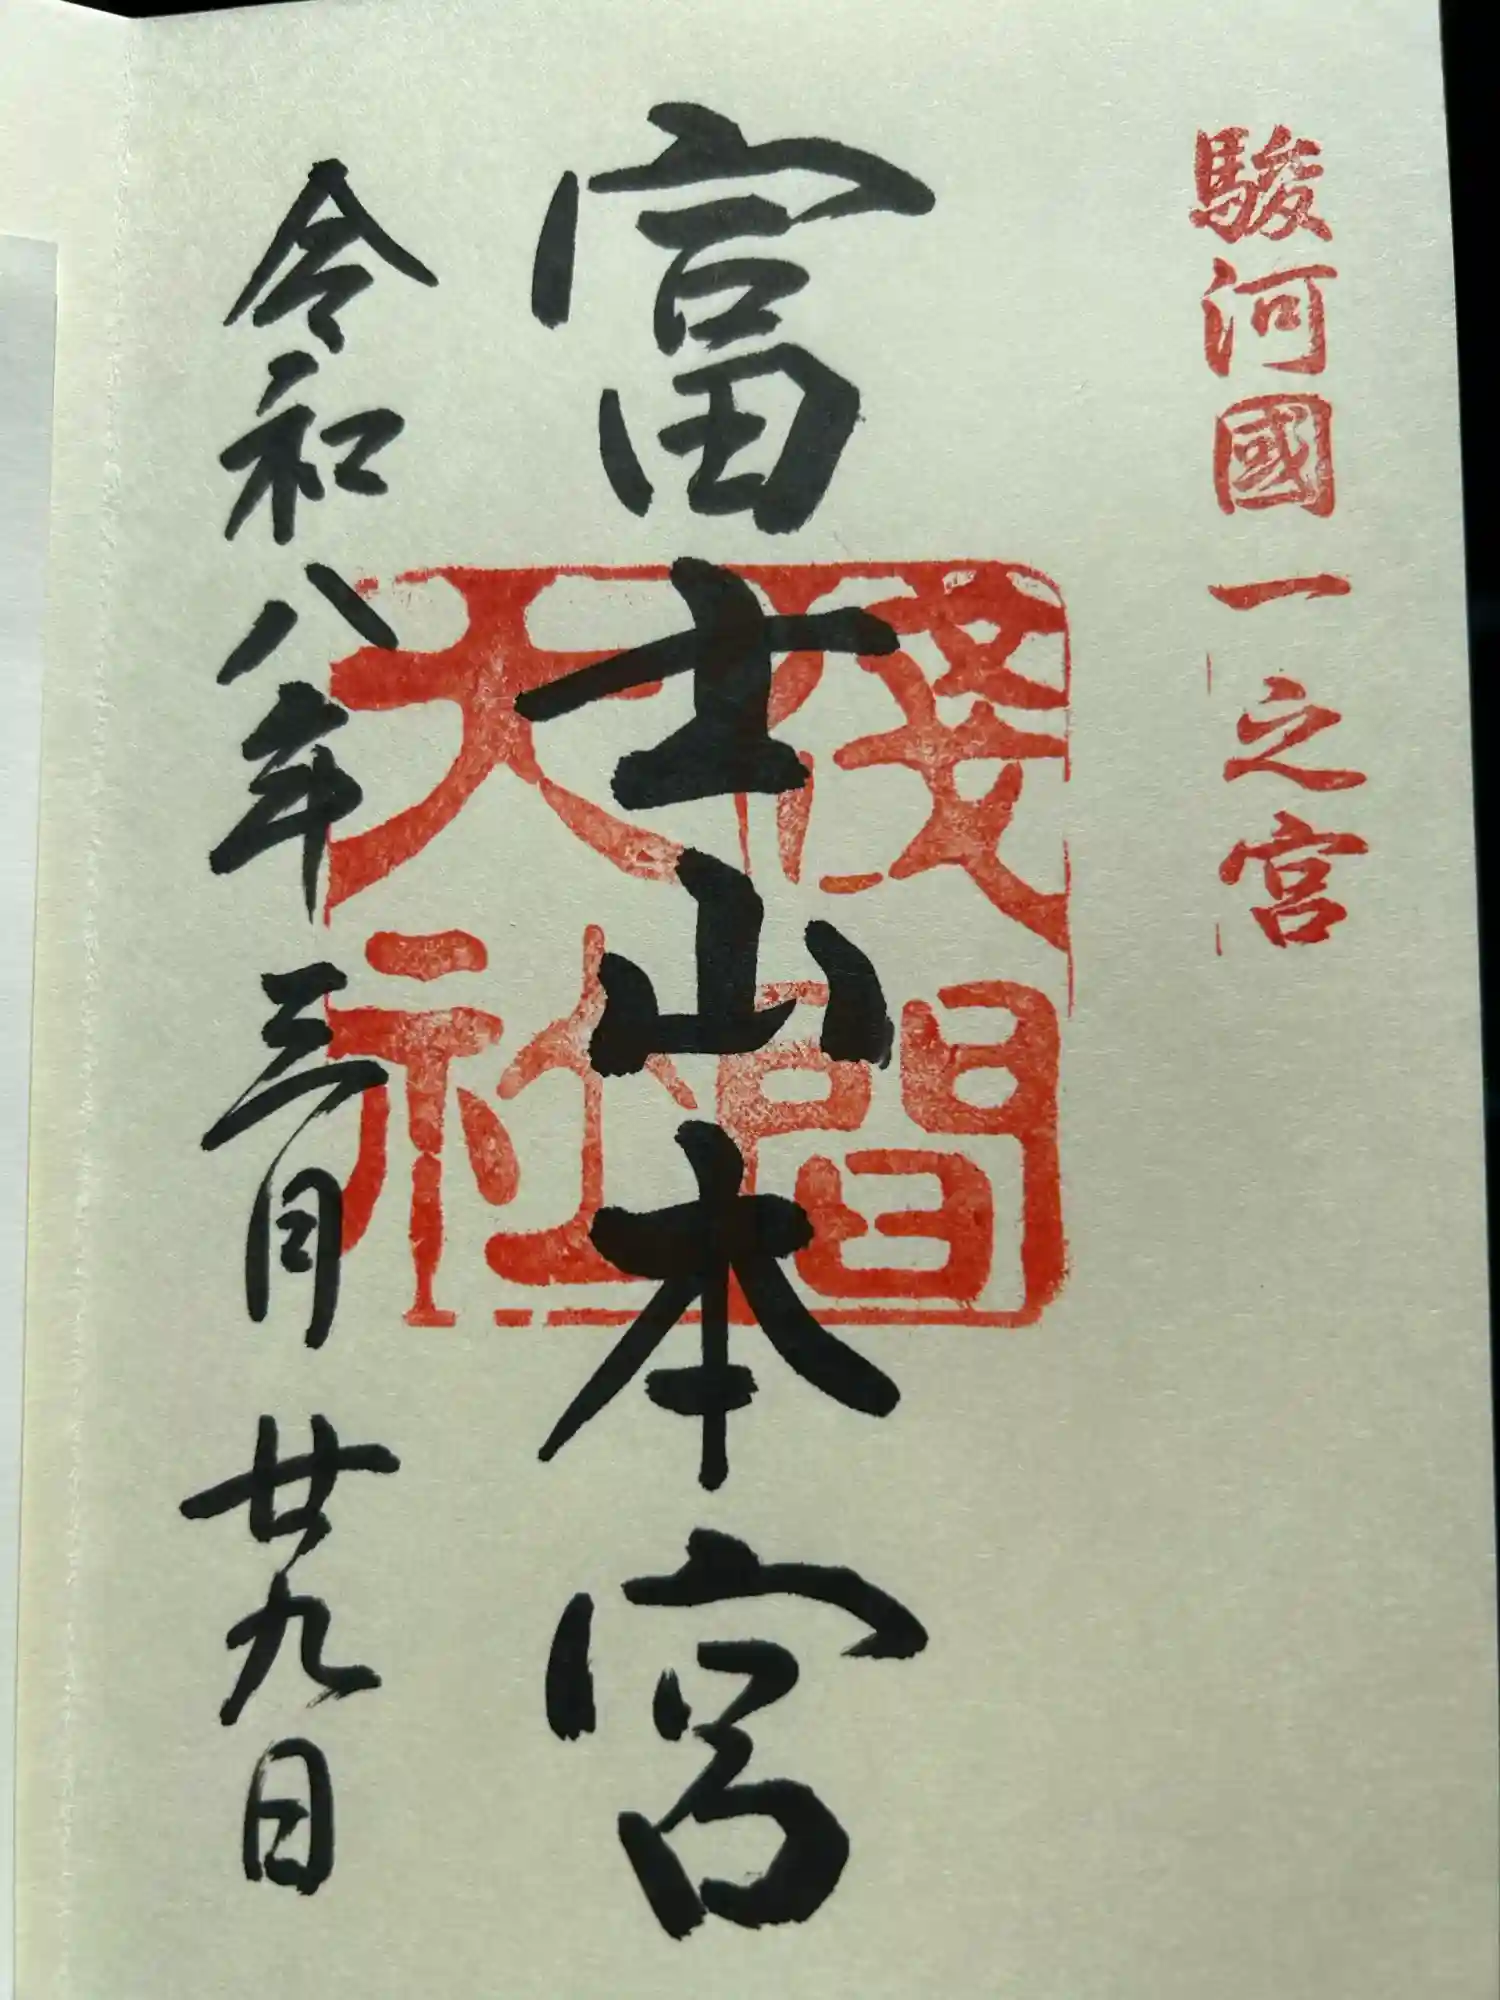 駿河國一之宮
富士山本宮
淺間
大社
令和八年三月廿九日